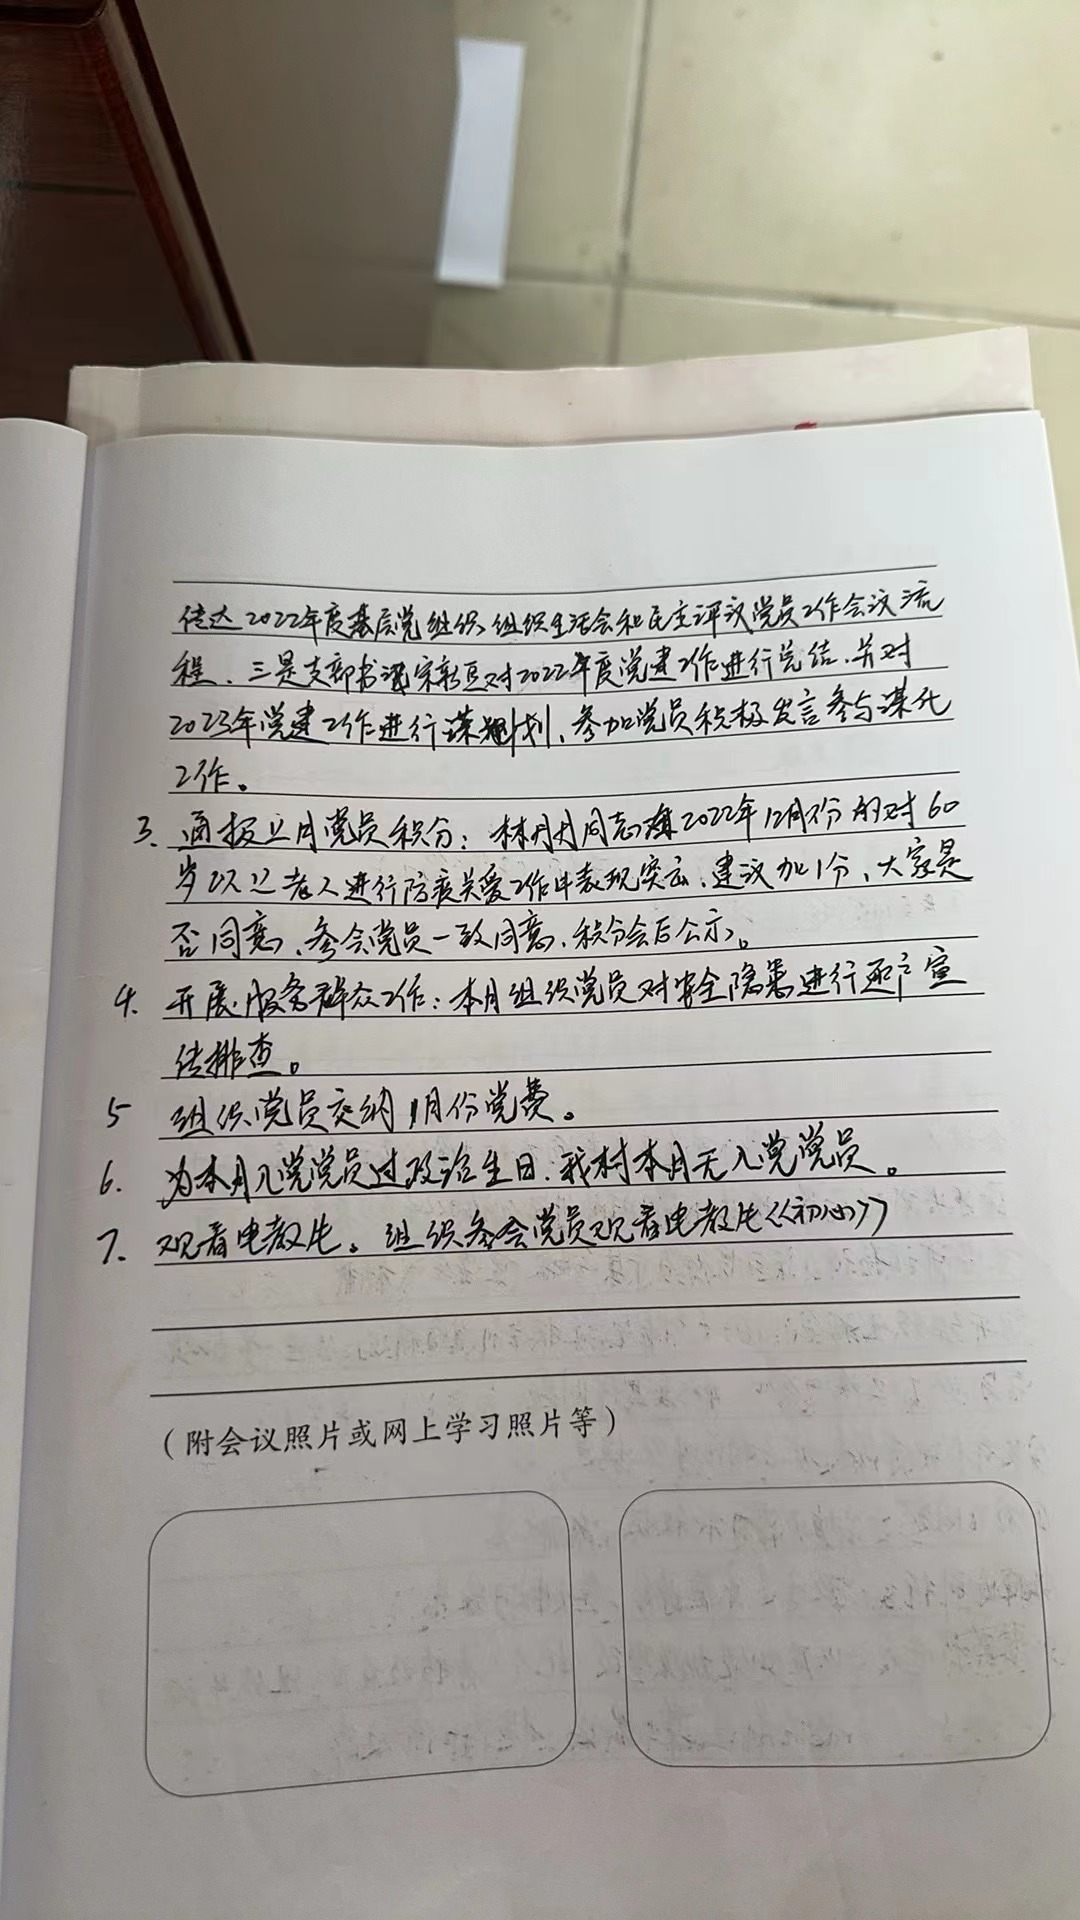 传达2022年度基层党组织组织生活会和民主评议党员工作会议流
程、三是支部书记宋新豆对2022年度党建工作进行总结、并对
2023年党建工作进行谋规划、参加党员积极发言参与谋化
工作。
3、通报上月党员积分：林丹丹同志在2022年12月份的对60
岁以上老人进行防疫关爱工作中表现突出、建议加1分、大家是
否同意、参会党员一致同意、积分会后公示。
4. 开展服务群众工作：本月组织党员对安全隐患进行逐户宣
传排查。
5 组织党员交纳1月份党费。
6. 为本月入党党员过政治生日：我村本月无入党党员。
7. 观看电教片。组织参会党员观看电教片《初心》
（附会议照片或网上学习照片等）